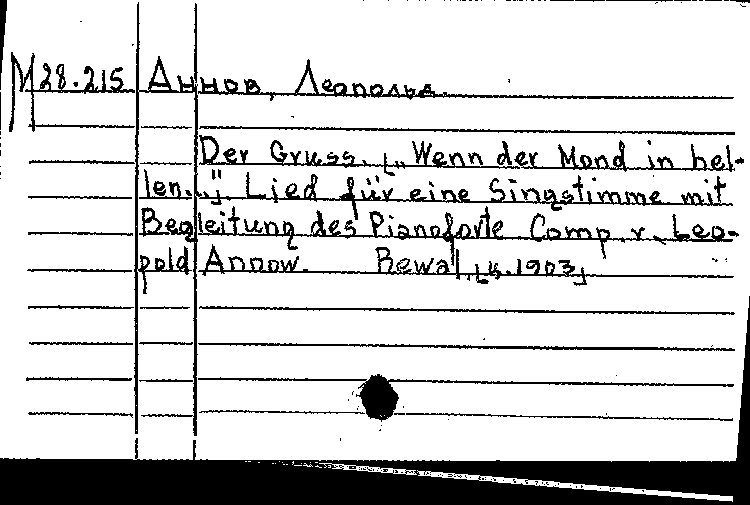 М 28.215 Аннов, Леопольд.
Der Gruss. [„Wenn der Mond in hel-
len...“]. Lied für eine Singstimme mit
Begleitung des Pianoforte Comp. v. Leo-
pold Annow. Rewal, [u. 1903]